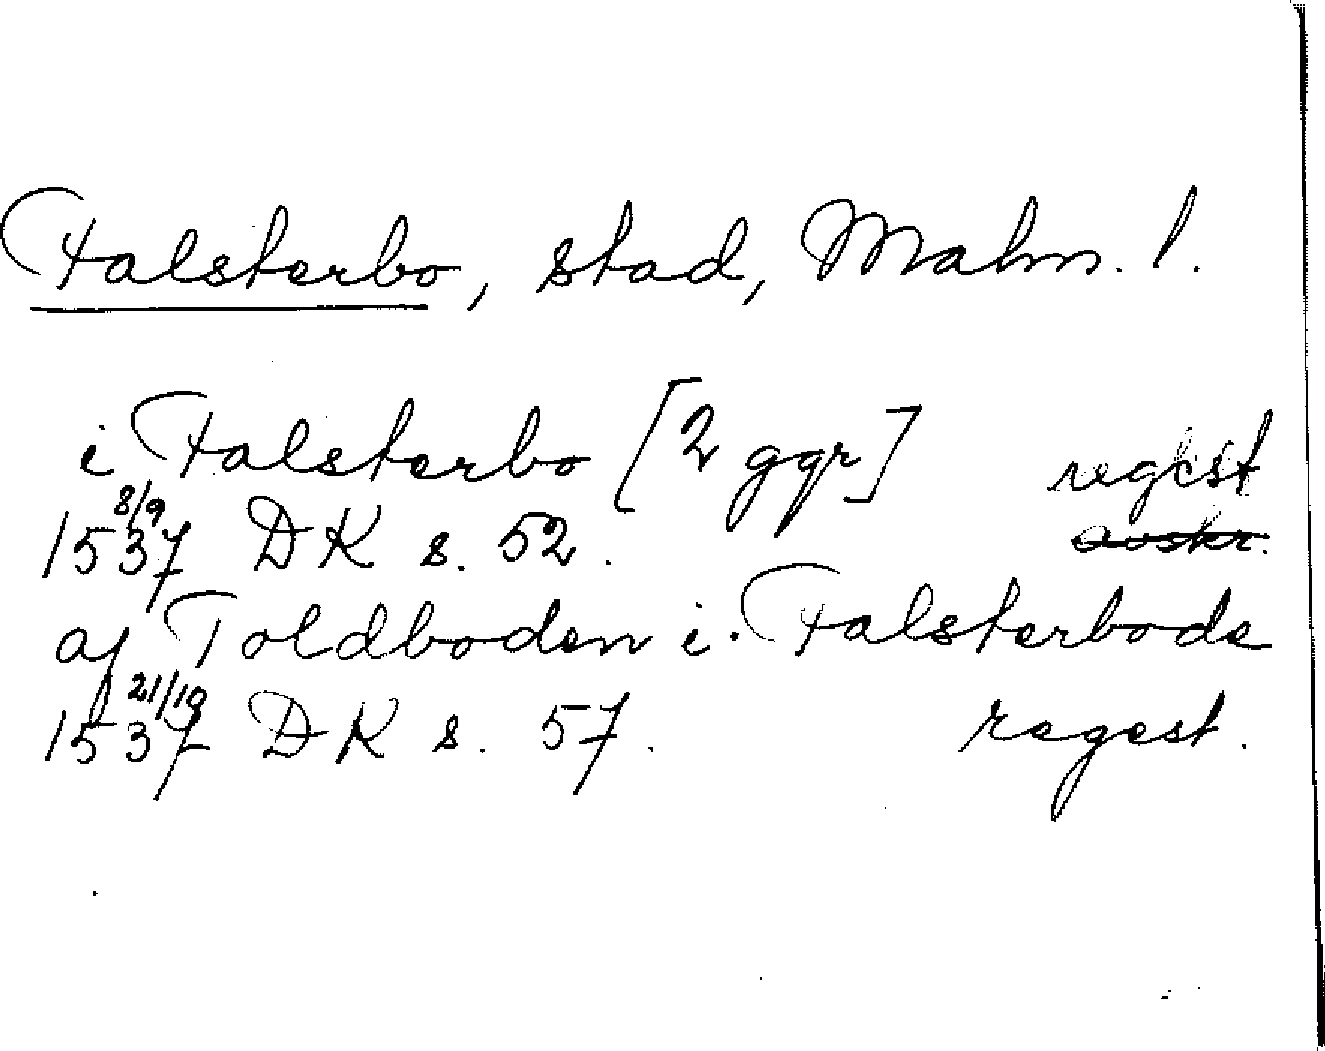 Falsterbo, stad, Malm. l.
i Falsterbo [2 ggr] regest
1537 8/9 DK s. 52. avskr.
af Toldboden i Falsterbode
1537 21/10 DK s. 57. regest.